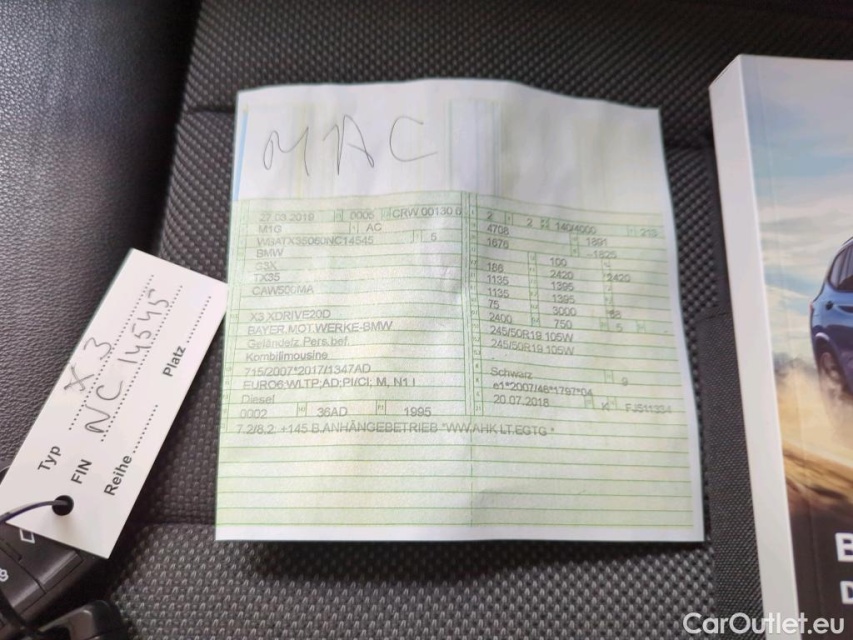 MAC
27.03.2019 0005 CRW 00130 0
M1G AC
WBATX35060NC14545 5
BMW
G3X
TX35
CAW500MA
X3 XDRIVE20D
BAYER.MOT.WERKE-BMW
Geländefz.Pers.bef.
Kombilimousine
715/2007*2017/1347AD
EURO6;WLTP;AD;PI/CI; M, N1 I
Diesel
0002 36AD 1995
7.2/8.2: +145 B.ANHÄNGEBETRIEB *WW.AHK LT.EGTG *
2 2 140/4000 213
4708 1891
1676 -1825
100
186 2420 2420
1135 1395
1135 1395
75 3000 68
2400 750 5
245/50R19 105W
245/50R19 105W
Schwarz 9
e1*2007/46*1797*04
20.07.2018 K FJ511334
Typ X3
FIN NC 14545
Reihe Platz
B
D
CarOutlet.eu